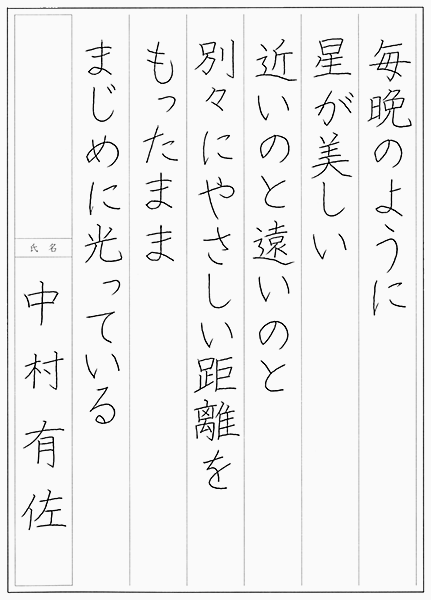 毎晩のように
星が美しい
近いのと遠いのと
別々にやさしい距離を
もったまま
まじめに光っている
氏名
中村有佐